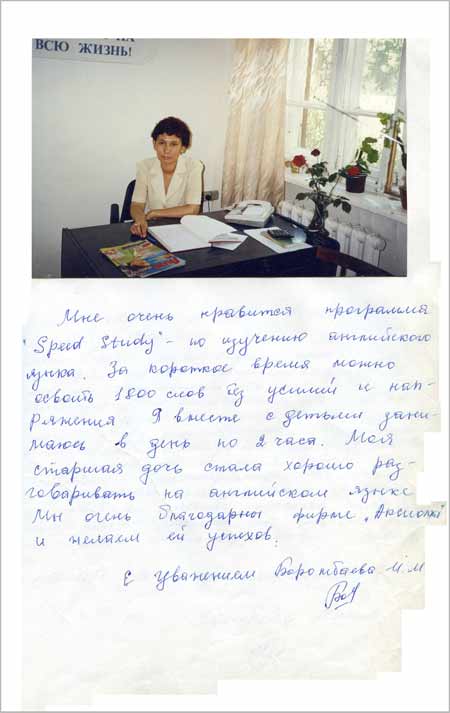 НА
ВСЮ ЖИЗНЬ!
Мне очень нравится программа
"Speed Study" - по изучению английского
языка. За короткое время можно
освоить 1800 слов без усилий и нап-
ряжения Я вместе с детьми зани-
маюсь в день по 2 часа. Моя
старшая дочь стала хорошо раз-
говаривать на английском языке
Мы очень благодарны фирме
и желаем ей успехов.
С уважением Боромбаева М.М